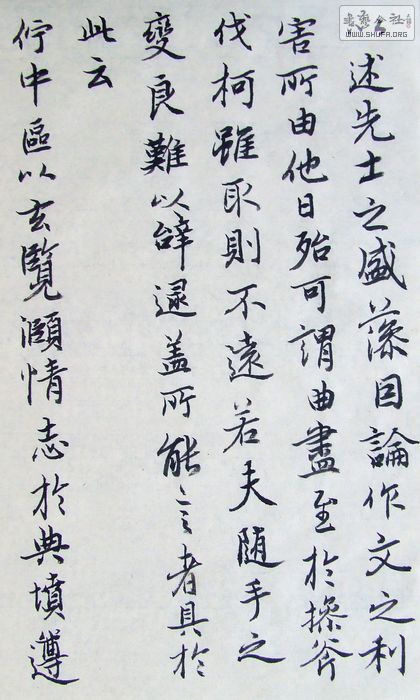 述先士之盛藻因論作文之利
害所由他日殆可謂曲盡至於操斧
伐柯雖取則不遠若夫隨手之
變良難以辝逯盖所能言者具於
此云
佇中區以玄覽頤情志於典墳遵
WWW.SHUFA.ORG